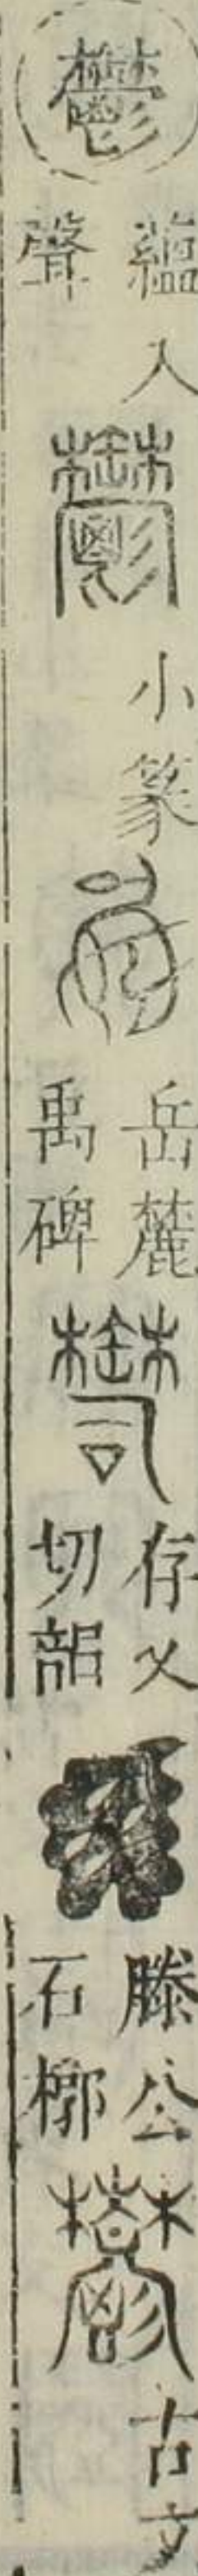 鬱
蘊入
聲
鬱
小篆
岳麓
禹碑
存乂
切韶
滕公
石槨
鬱
古文